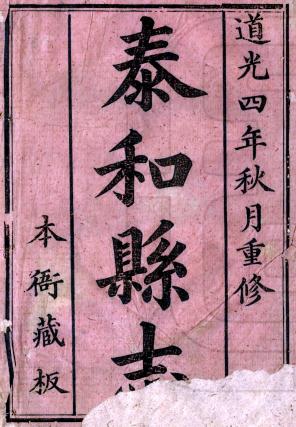 道光四年秋月重修
泰和縣志
本衙藏板